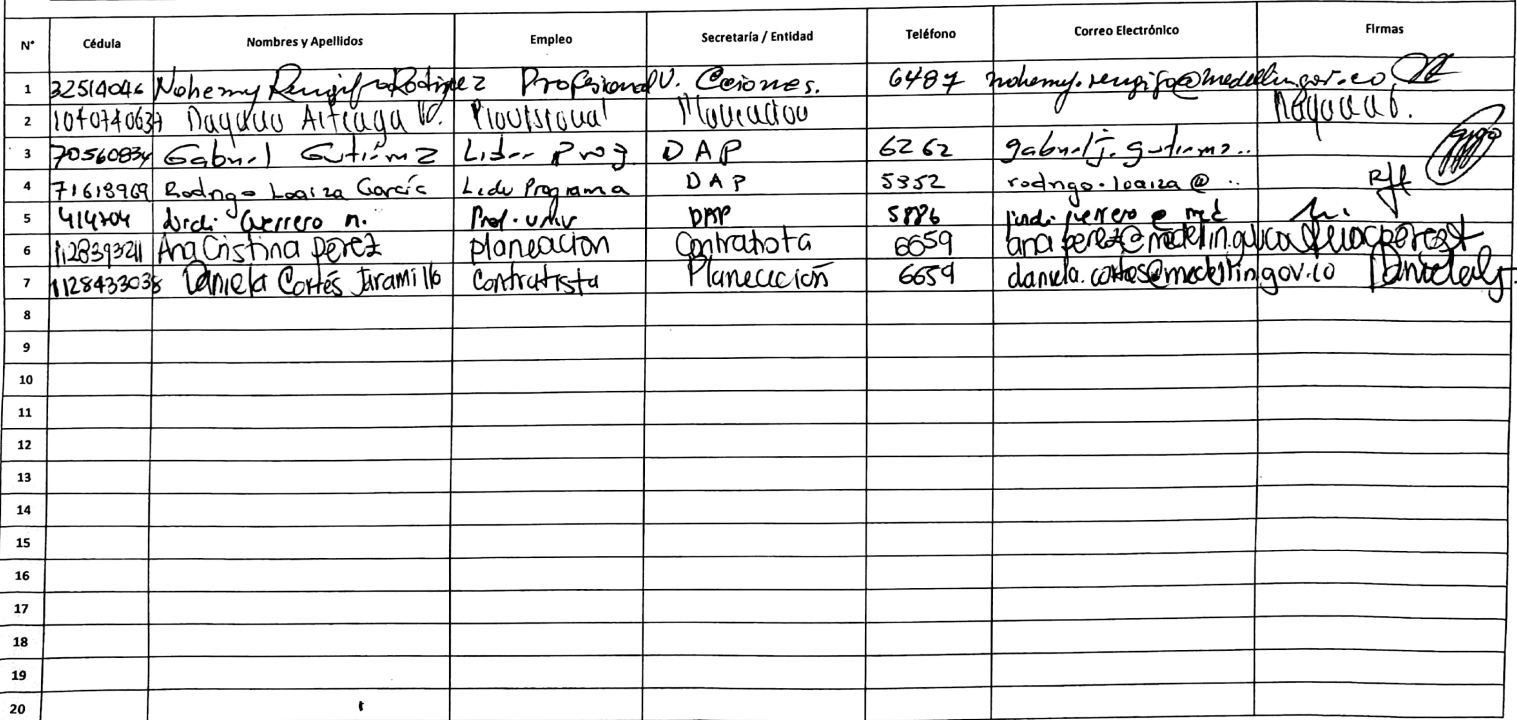 N° Cédula Nombres y Apellidos Empleo Secretaría / Entidad Teléfono Correo Electrónico Firmas
1 32514046 Nohemy Rengifo Rodriguez Profesional U. 6487 nohemy.rengifo@medellin.gov.co
2 1040740637 Provisional
3 70560834 Gabriel Gutiérrez Lider Prog DAP 6262 gabriel.j.gutierrez..
4 71613969 Rodrigo Loaiza García Lider Programa DAP 5352 rodrigo.loaiza@..
5 Guerrero n. Prof. univ DAP 5886
6 1128393211 Ana Cristina perez planeacion Contratista 6659
7 1128433038 Daniela Cortés Jaramillo Contratista Planeación 6659 daniela.cortes@medellin.gov.co
8
9
10
11
12
13
14
15
16
17
18
19
20